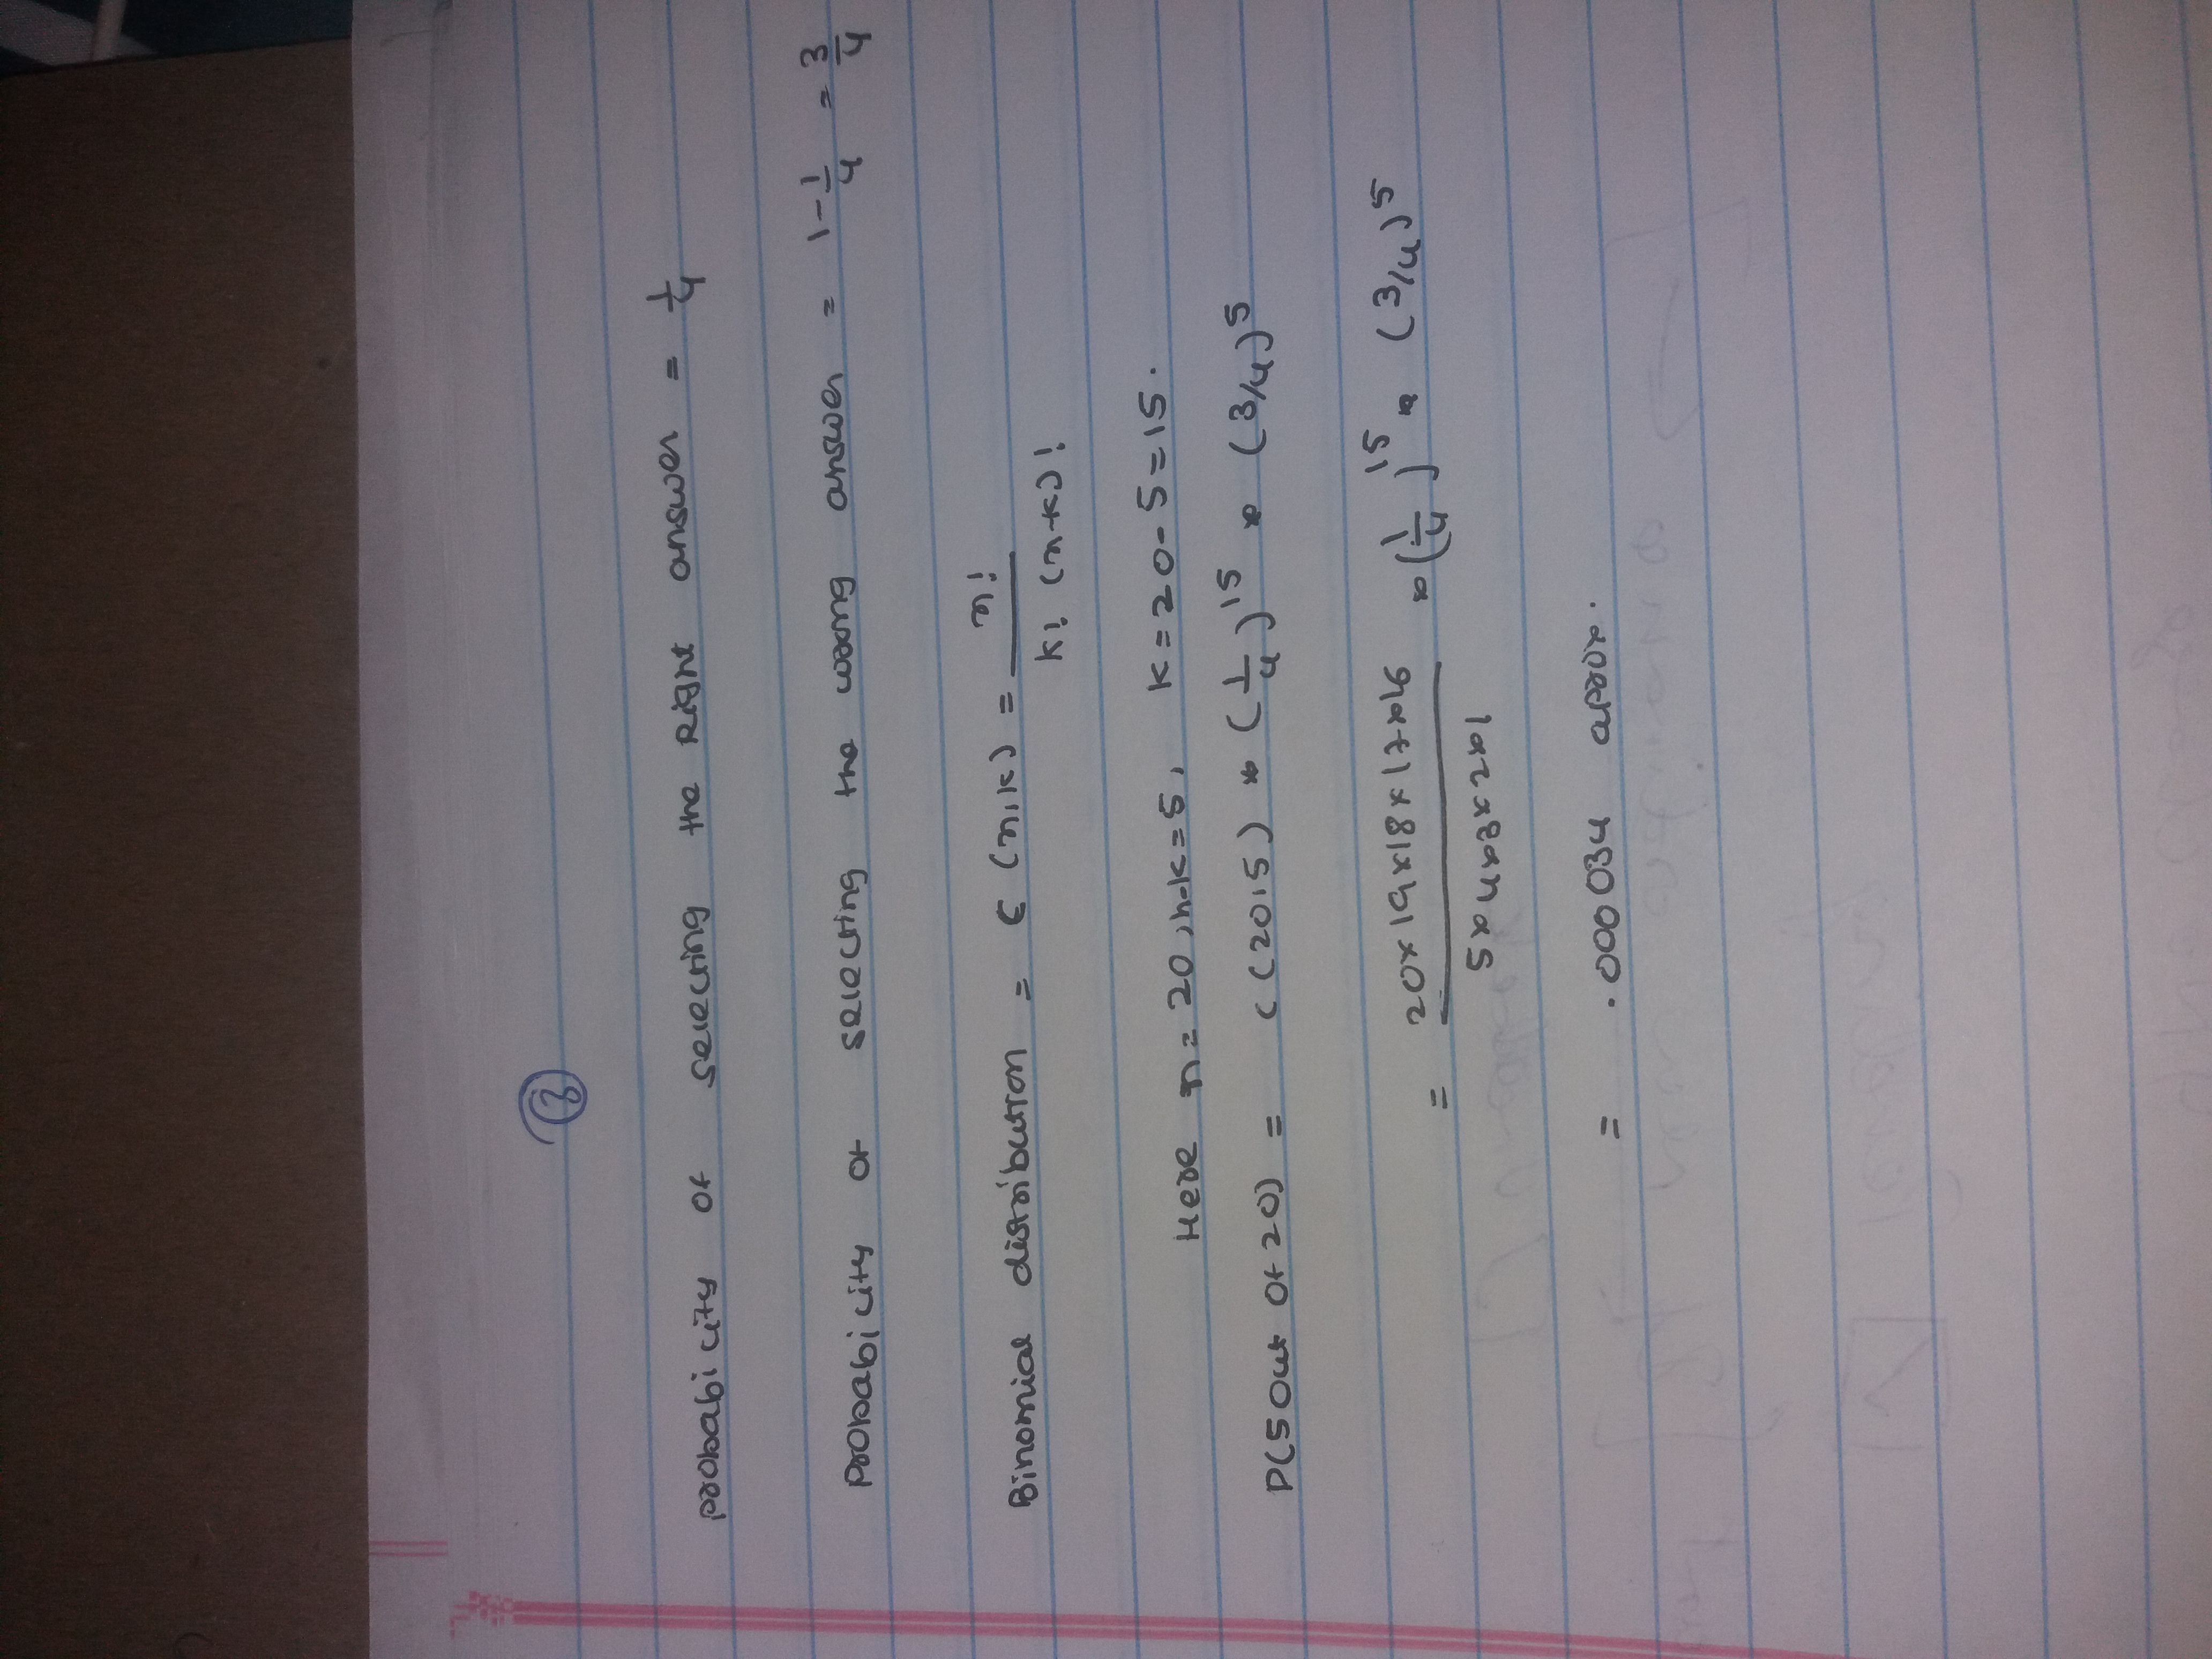 3
Probability of selecting the Right answer = 1/4
Probability of selecting the wrong answer = 1-1/4 = 3/4
Binomial distribution = C (n,k) = n! / k! (n-k)!
Here n = 20, n-k = 5, k = 20-5 = 15.
P(5 out of 20) = C(20,5) * (1/4)^15 * (3/4)^5
= 20×19×18×17×16 / 5×4×3×2×1 * (1/4)^15 * (3/4)^5
= .000034 aprox.